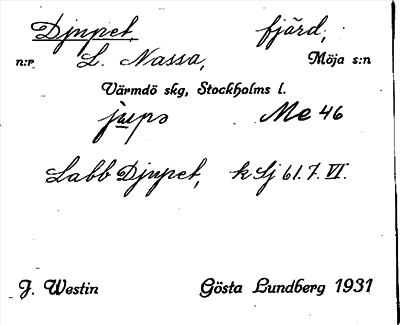 Djupet, fjärd,
n:r L. Nassa, Möja s:n
Värmdö skg, Stockholms l.
Me 46
Labb Djupet, k Sj 61.7.VI.
J. Westin Gösta Lundberg 1931